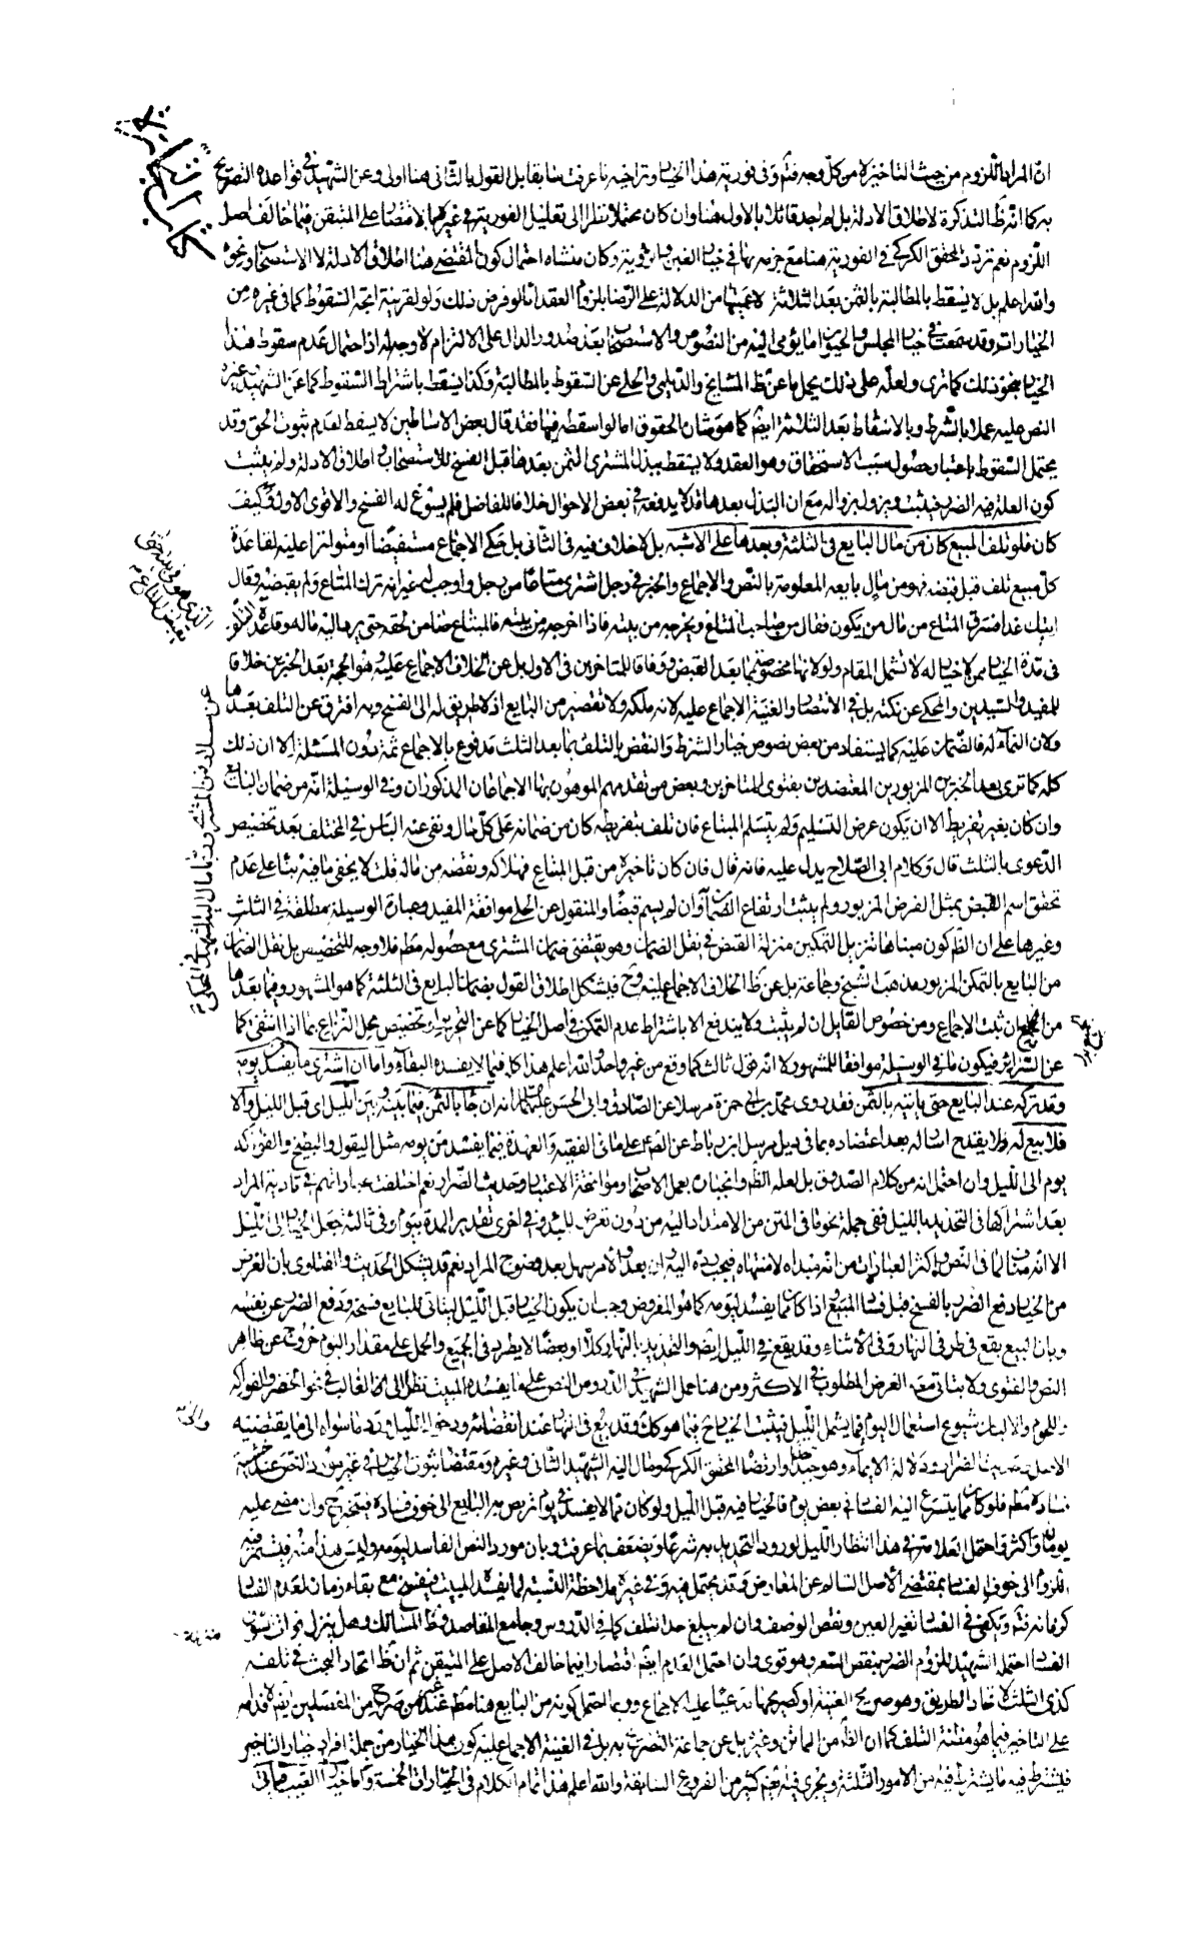 كتاب التجارة
ان المراد اللزوم من حيث التاخير لا من كل وجه فتم وفى فورية هذا الخيار وتراخيه ما عرفت سابقا بل القول بالثانى هنا اولى وعن الشهيد فى قواعده التصريح
به كما انه ظ التذكرة لاطلاق الادلة بل لم اجد قائلا بالاول هنا وان كان محتملا نظرا الى تعليل الفورية فى غيره بالاقتصار على المتيقن فيما خالف اصل
اللزوم نعم تردد المحقق الكركى فى الفورية هنا مع جزمه بها فى خيار الغبن والرؤية وكان منشاه احتمال كون المقتضى هنا اطلاق الادلة لا الاستصحاب ونحوه
والله اعلم بل لا يسقط بالمطالبة بالثمن بعد الثلاثة لاعميتها من الدلالة على الرضا بلزوم العقد اما لو فرض ذلك ولو لقرينة اتجه السقوط كما فى غيره من
الخيارات وقد سمعت فى خيار المجلس والحيوان ما يؤمى اليه من النصوص والاستصحاب بعد صدور الدال على الالتزام لا وجه له اذ احتمال عدم سقوط هذا
الخيار بنحو ذلك كما ترى ولعله على ذلك يحمل ما عن ظ المشايخ والديلمى والحلى عن السقوط بالمطالبة وكذا يسقط باشتراط السقوط كما عن الشهيد وغيره
النص عليه عملا بالشرط وبالاسقاط بعد الثلاثة ايضم كما هو شان الحقوق اما لو اسقطه فيها فقد قال بعض الاساطين لا يسقط لعدم ثبوت الحق وقد
يحتمل السقوط باعتبار حصول سبب الاستحقاق وهو العقد ولا يسقط ببذل المشترى الثمن بعدها قبل الفسخ للاستصحاب واطلاق الادلة ولم يثبت
كون العلة فيه الضرر فيثبت ويزول بزواله مع ان البذل بعدها قد لا يدفعه فى بعض الاحوال خلافا للفاضل فلم يسوغ له الفسخ والاقوى الاول وكيف
كان فلو تلف المبيع كان من مال البايع فى الثلثة وبعدها على الاشبه بل لا خلاف فيه فى الثانى بل حكى الاجماع مستفيضا او متواترا عليه لقاعدة
كل مبيع تلف قبل قبضه فهو من مال بايعه المعلومة بالنص والاجماع والخبر فى رجل اشترى متاعا من رجل واوجب له غير انه ترك المتاع ولم يقبضه وقال
اتيك غدا فسرق المتاع من مال من يكون فقال من صاحب المتاع ويخرجه من بيته فاذا اخرجه من بيته فالمبتاع ضامن لحقه حتى يرد اليه ماله وقاعدة التلف
فى مدة الخيار ممن لا خيار له لا تشمل المقام ولو لانها مخصوصة بما بعد القبض وفاقا للمتاخرين فى الاول بل عن الخلاف الاجماع عليه وهو الحجة بعد الخبرين خلافا
للمفيد والسيدين والمحكى عن نكته بل فى الانتصار والغنية الاجماع عليه لانه ملكه ولا تقصير من البايع اذ لا طريق له الى الفسخ وبه افترق عن التلف بعدها
ولان النماء له فالضمان عليه كما يستفاد من بعض نصوص خيار الشرط والنقض بالتلف بما بعد الثلث مدفوع بالاجماع ثمة بدون المسئلة الا ان ذلك
كله كما ترى بعد الخبرين المزبورين المعتضدين بفتوى المتاخرين وبعض من تقدمهم الموهون بها الاجماعان المذكوران وفى الوسيلة انه من ضمان البايع
وان كان بغير تفريط الا ان يكون عرض التسليم ولم يتسلم المبتاع فان تلف بتفريطه كان من ضمانه على كل حال ونفى عنه الباس فى المختلف بعد تخصيص
الدعوى بالثلث قال وكلام ابى الصلاح يدل عليه فانه قال فان كان تاخيره من قبل المبتاع فهلاكه ونقصه من ماله قلت لا يخفى ما فيه بناء على عدم
تحقق اسم القبض بمثل الفرض المزبور ولم يثبت ارتفاع الضمان وان لم يسم قبضا والمنقول عن الحلبى موافقة المفيد وعبارة الوسيلة مطلقة فى الثلاث
وغيرها على ان الظم كون مبناها تنزيل التمكين منزلة القبض فى نقل الضمان وهو يقتضى ضمان المشترى مع حصوله مطم فلا وجه للتخصيص بل نقل الضمان
من البايع بالتمكن المزبور مذهب الشيخ وجماعة بل عن ظ الخلاف الاجماع عليه وح فيشكل اطلاق القول بضمان البايع فى الثلثة كما هو المشهور وفيما بعدها
من الجميع ان ثبت الاجماع ومن خصوص القايل ان لم يثبت ولا يندفع الا باشتراط عدم التمكن فى اصل الخيار كما عن التحرير او تخصيص محل النزاع بما اذا انتفى كما
عن السرائر فيكون ما فى الوسيلة موافقا للمشهور لا انه قول ثالث كما وقع من غير واحد والله اعلم هذا كله فيما لا يفسده البقاء واما ان اشترى ما يفسد ليومه
وقد تركه عند البايع حتى ياتيه بالثمن فقد روى محمد بن ابى حمزة مرسلا عن الصادق وابى الحسن عليهما السلام انه ان جاء بالثمن فيما بينه وبين الليل اى قبل الليل والا
فلا بيع له ولا يقدح ارساله بعد اعتضاده بما فى ذيل مرسل ابن رباط عن الصم على ما فى الفقيه والعهدة فيما يفسد من يومه مثل البقول والبطيخ والفواكه
يوم الى الليل وان احتمل انه من كلام الصدوق بل لعله الظم وانجباره بعمل الاصحاب وموافقة الاعتبار وحديث الضرار نعم اختلفت عباراتهم فى تادية المراد
بعد اشتراكها فى التحديد بالليل ففى جملة نحو ما فى المتن من الامتداد اليه من دون تعرض للمبدء وفى اخرى تقدير المدة بيوم وفى ثالثة جعل الخيار الى الليل
الا انه مناف لما فى النص واكثر العبارات من انه مبداه لا منتهاه فيجب رده اليه وان بعد والامر سهل بعد وضوح المراد نعم قد يشكل الحديث والفتاوى بان الغرض
من الخيار دفع الضرر بالفسخ قبل فساد المبيع فاذا كان مما يفسد ليومه كما هو المفروض وجب ان يكون الخيار قبل الليل ليتاتى للبايع فسخه ودفع الضرر عن نفسه
وبان البيع يقع فى طرفى النهار وفى الاثناء وقد يقع فى الليل ايضم والتحديد بالنهار كلا او بعضا لا يطرد فى الجميع والحمل على مقدار اليوم خروج عن ظاهر
النص والفتوى ولا يتاتى معه الغرض المطلوب فى الاكثر ومن هنا حمل الشهيد فى الدروس النص على ما يفسده المبيت نظرا الى انه الغالب فى نحو الخضر والفواكه
واللحوم والالبان وشيوع استعمال اليوم فيما يشمل الليل فيثبت الخيار ح فيما هو كك وقد بيع فى النهار عند انقضائه ودخول الليل ورد ما سواه الى ما يقتضيه
الاصل بنفى الضرار ودلالة الايماء وهو جيد وارتضاه المحقق الكركى ومال اليه الشهيد الثانى وغيره ومقتضاه ثبوت الخيار فى غير مورد النص عند خشية
فساده مطم فلو كان مما يتسرع اليه الفساد فى بعض يوم فالخيار فيه قبل الليل ولو كان مما لا يفسد فى يوم تربص به البايع الى خوف فساده فيتخير ح وان مضى عليه
يومان او اكثر واحتمل العلامة فى هذا انتظار الليل لورود التحديد به شرعا ويضعف بما عرفت وبان مورد النص الفاسد ليومه وليس هذا منه فيستمر فيه
اللزوم الى خوف الفساد بمقتضى الاصل السالم عن المعارض وقد يحتمل فيه وفى غيره ملاحظة النسبة لما يفسده المبيت فيفسخ مع بقاء زمان لعدم الفساد
كزمانه فتم ويكفى فى الفساد تغير العين ونقص الوصف وان لم يبلغ حد التلف كما فى الدروس وجامع المقاصد وظ المسالك وهل ينزل فوات السوق
الفساد احتمله الشهيد للزوم الضرر بنقص السعر وهو قوى وان احتمل العدم ايضم اقتصارا فيما خالف الاصل على المتيقن ثم ان ظ اتحاد البحث فى تلف
كذى الثلث لاتحاد الطريق وهو صريح الغنية او كصريحها مدعيا عليه الاجماع وربما احتمل كونه من البايع هنا مطم عند من صرح من المفصلين بتفريع لاقدامه
على التاخير فيما هو مظنة التلف كما ان الظم من الماتن وغيره بل عن جماعة التصريح به بل فى الغنية الاجماع عليه كون هذا الخيار من جملة افراد خيار التاخير
فيشترط فيه ما يشترط فيه من الامور الثلثة ويجرى فيه نعم كثير من الفروع السابقة والله اعلم هذا تمام الكلام فى الخيارات الخمسة واما خيار العيب فياتى